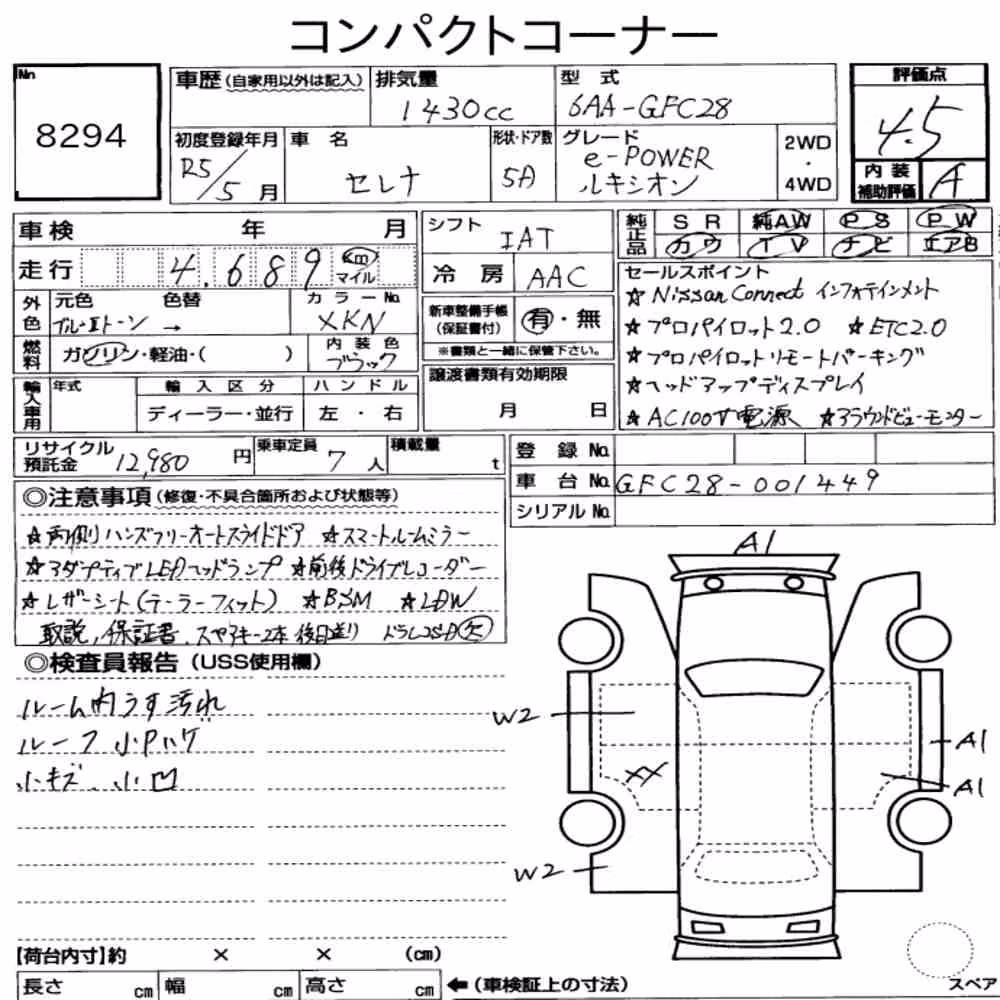 コンパクトコーナー
No
8294
車歴(自家用以外は記入)
排気量
1430cc
型 式
6AA-GFC28
評価点
4.5
初度登録年月
R5/5月
車 名
セレナ
形状・ドア数
5D
グレード
e-POWER
ルキシオン
2WD
・
4WD
内装
補助評価
A
車検 年 月
シフト
IAT
純正品
SR 純AW PS PW
カワ TV ナビ エアB
走行
4.689
km
マイル
冷房 AAC
セールスポイント
☆Nissan Connect インフォテインメント
☆プロパイロット2.0 ☆ETC2.0
☆プロパイロットリモートパーキング
☆ヘッドアップディスプレイ
☆AC100V電源 ☆アラウンドビューモニター
外色
元色 色替
ブルーⅡトーン →
カラーNo.
XKN
新車整備手帳
(保証書付)
有・無
※書類と一緒に保管下さい。
燃料
ガソリン・軽油・( )
内装色
ブラック
譲渡書類有効期限
月 日
輸入車用
年式
輸入区分
ハンドル
ディーラー・並行
左・右
リサイクル
預託金
12,980円
乗車定員
7人
積載量
t
登録No.
車台No. GFC28-001449
シリアルNo.
◎注意事項(修復・不具合箇所および状態等)
☆両側ハンズフリーオートスライドドア ☆スマートルームミラー
☆アダプティブLEDヘッドランプ ☆前後ドライブレコーダー
☆レザーシート(テーラーフィット) ☆BSM ☆LDW
取説、保証書、スペアキー2本後日送り ドラレコSD欠
◎検査員報告(USS使用欄)
ルーム内うす汚れ
ルーフ小Pハゲ
小キズ、小凹
A1
W2
XX
A1
A1
W2
【荷台内寸】約 × × (cm)
長さ cm 幅 cm 高さ cm
←(車検証上の寸法)
スペア